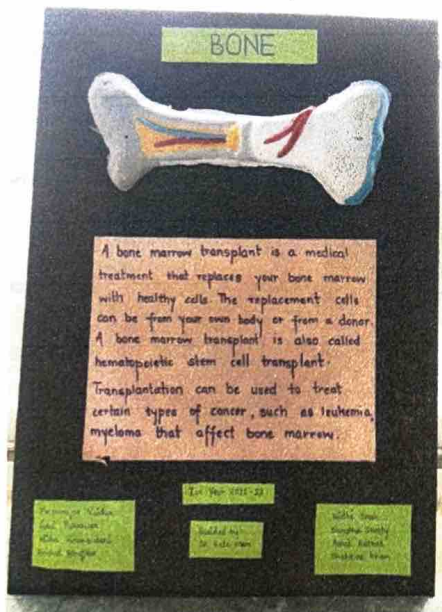 BONE
A bone marrow transplant is a medical
treatment that replaces your bone marrow
with healthy cells. The replacement cells
can be from your own body or from a donor.
A bone marrow transplant is also called
hematopoietic stem cell transplant.
Transplantation can be used to treat
certain types of cancer, such as leukemia,
myeloma that affect bone marrow.
Year
Guided by